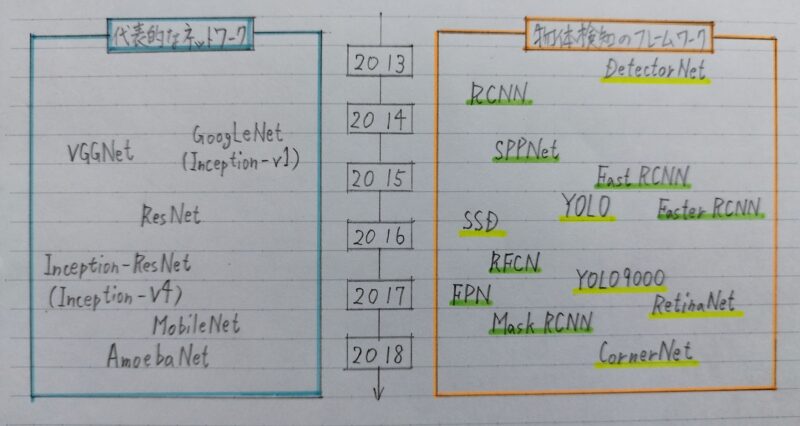 代表的なネットワーク
VGGNet
GoogLeNet
(Inception-v1)
ResNet
Inception-ResNet
(Inception-v4)
MobileNet
AmoebaNet
2013
2014
2015
2016
2017
2018
物体検知のフレームワーク
DetectorNet
RCNN
SPPNet
Fast RCNN
SSD YOLO Faster RCNN
RFCN
FPN YOLO9000
RetinaNet
Mask RCNN
CornerNet